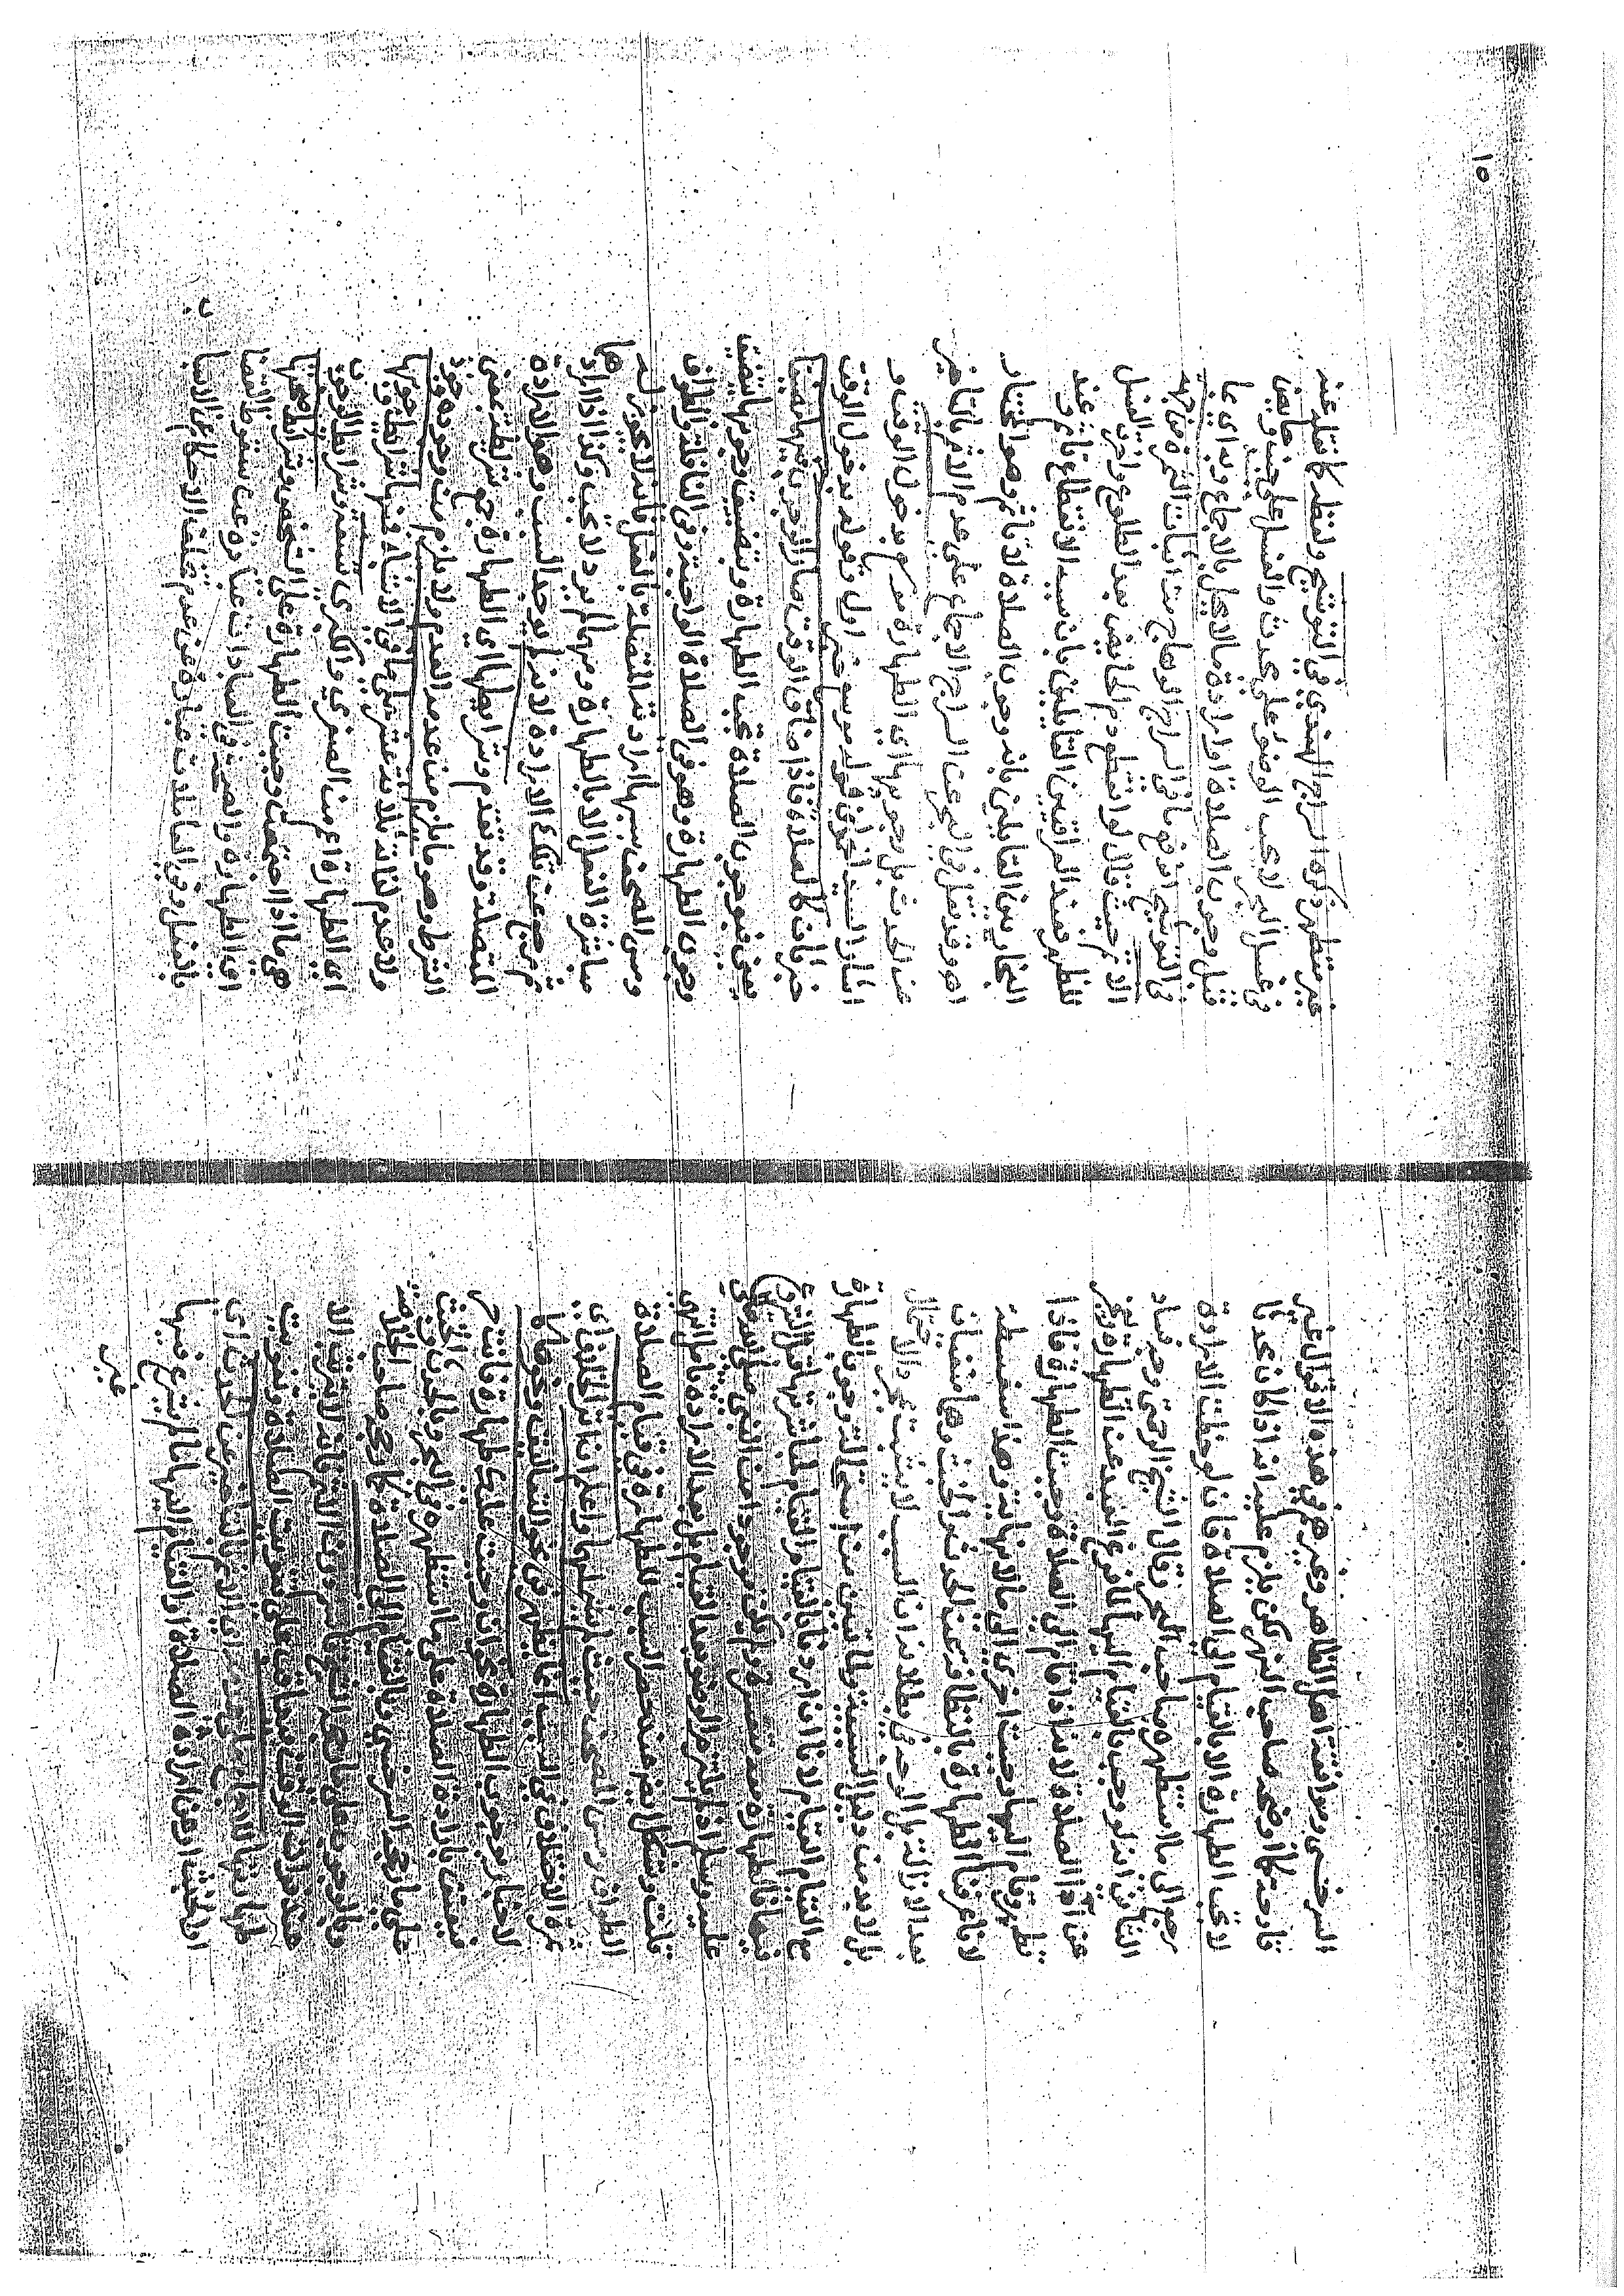 السرخسي وموافقة اهل الظاهر وغيرهم في هذه الاقوال غير
قادحة كما اوضحه صاحب النهر لكن يلزم عليه انه اذا كان محدثا
لا تجب الطهارة الا بالقيام الى الصلاة فان لوحظت الارادة
رجع الى ما استظهره صاحب البحر وقال الشيخ الرحمتي وجه فساد
الثاني انه لو وجبت بالقيام اليها لما فرغ العبد عن الطهارة
عن اداء الصلاة لانه اذا قام الى الصلاة وجبت الطهارة فاذا
تطهر وقام اليها وجبت اخرى الى ما لا نهاية وهذا سفسطة
لانا عرفنا الطهارة بالنظافة عن الحدث والخبث وهما منتفيان
بعد الازالة بالوجه في بطلانه ان السبب لا يثبت بمجرد الاحتمال
بل لا بد منه دليل السببية ولما تبين من استحالة وجوب الطهارة
مع القيام القيام لانا ان اردنا بالقيام القيام لمباشرتها قبل الشروع
فيها فالطهارة منه متعسرة ولم يكن موجودا من النبي صلى الله تعالى
عليه وسلم اذا فعليته الوضوء بعد القيام بل بعد الارادة فتامل انتهى
قلت ويشكل ايضا حصر السبب للطهارة في قيام الصلاة
الطواف ومس المصحف حيث لم يشملهما واعلم ان اثر الخلاف اي
ثمرة الاختلاف في السبب انما يظهر في نحو التعاليق ونحوها
لاخباره بوجوب الطهارة نحو ان وجبت عليك طهارة فانت ح
فيعتق بارادة الصلاة على ما استظهره في البحر وبالحدث والخبث
على ما رجحه السرخسي وبالقيام الى الصلاة كما رجحه صاحب الخلاصة
وبالوجوب على ما رجحه الشيخ قاسم دون الاثم فانه لا يترتب الا
عند خوات الوقت وضيقه على تفويت الصلاة وتفويت
طهارتها للاجماع على عدمه اي الاثم بالتاخير عن الحدث اي
او الخبث او عن ارادة الصلاة او القيام اليها ما لم يشرع فيها
غير
١٥
غير متطهر ذكره السراج الهندي في التوشيح ونظر كما نقل عنه
في غسل البحر لا يجب الوضوء على محدث والغسل على جنب وحايض
قبل وجوب الصلاة او ارادة ما لا يحل بالاجماع وبه اي بما
في التوشيح اندفع ما في السراج الوهاج من اثبات الثمرة من جهة
الاثم حيث قال لو انقطع دم الحايض بعد الطلوع واخرت الغسل
للظهر فعند العراقيين القائلين بان سببه الانقطاع تاثم وعند
البخاريين القائلين بانه وجوب الصلاة لا تاثم وهو المختار
اهـ وقد نقل في البحر عن السراج الاجماع على عدم الاثم بالتاخير
عن الحدث بل وجوبها اي الطهارة موسع بدخول الوقت و
اشار السيد الحموي في قوله موسع من اول وقوله بدخول الوقت
خبر ثان كالصلاة فاذا ضاق الوقت صار الوجوب فيهما مضيقا
يعني فبوجوب الصلاة تجب الطهارة وبتضيق وجوبها يتضيق
وجوب الطهارة وهو في الصلاة الواجبة وفي النافلة والطواف
ومس المصحف سببها ارادته المتصلة بالفعل فانه لا يجوز له
مباشرة الفعل الا بالطهارة ومهما لم يرد لا تجب وكذا اذا ارادها
ثم رجع عن تلك الارادة لانه لم يوجد السبب وهو الارادة
المتصلة وقد تقدم وشرايطها اي الطهارة جمع شريطة بمعنى
الشرط وهو ما يلزم من عدمه العدم ولا يلزم من وجوده وجود
ولا عدم لذاته ثلاثة عشر على ما في الاشباه منها شرائط وجوبها
اي الطهارة اعم من الصغرى والكبرى تسعة وشرائط الوجوب
هي ما اذا اجتمعت وجبت الطهارة على الشخص وشرائط صحتها
اي الطهارة والصحة في العبادات عبارة عن سقوط القضا
بالفعل وفي المعاملات عبارة عن عدم تخلف الاحكام عن الاسباب